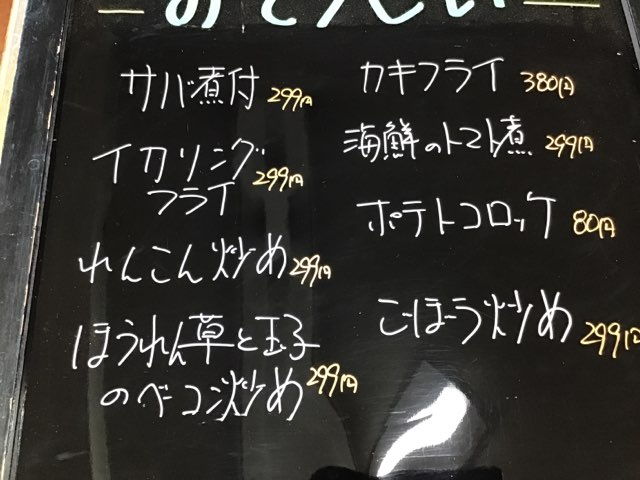 おそうざい
サバ煮付 299円
イカリング
フライ 299円
れんこん炒め 299円
ほうれん草と玉子
のベーコン炒め 299円
カキフライ 380円
海鮮のトマト煮 299円
ポテトコロッケ 80円
ごぼう炒め 299円